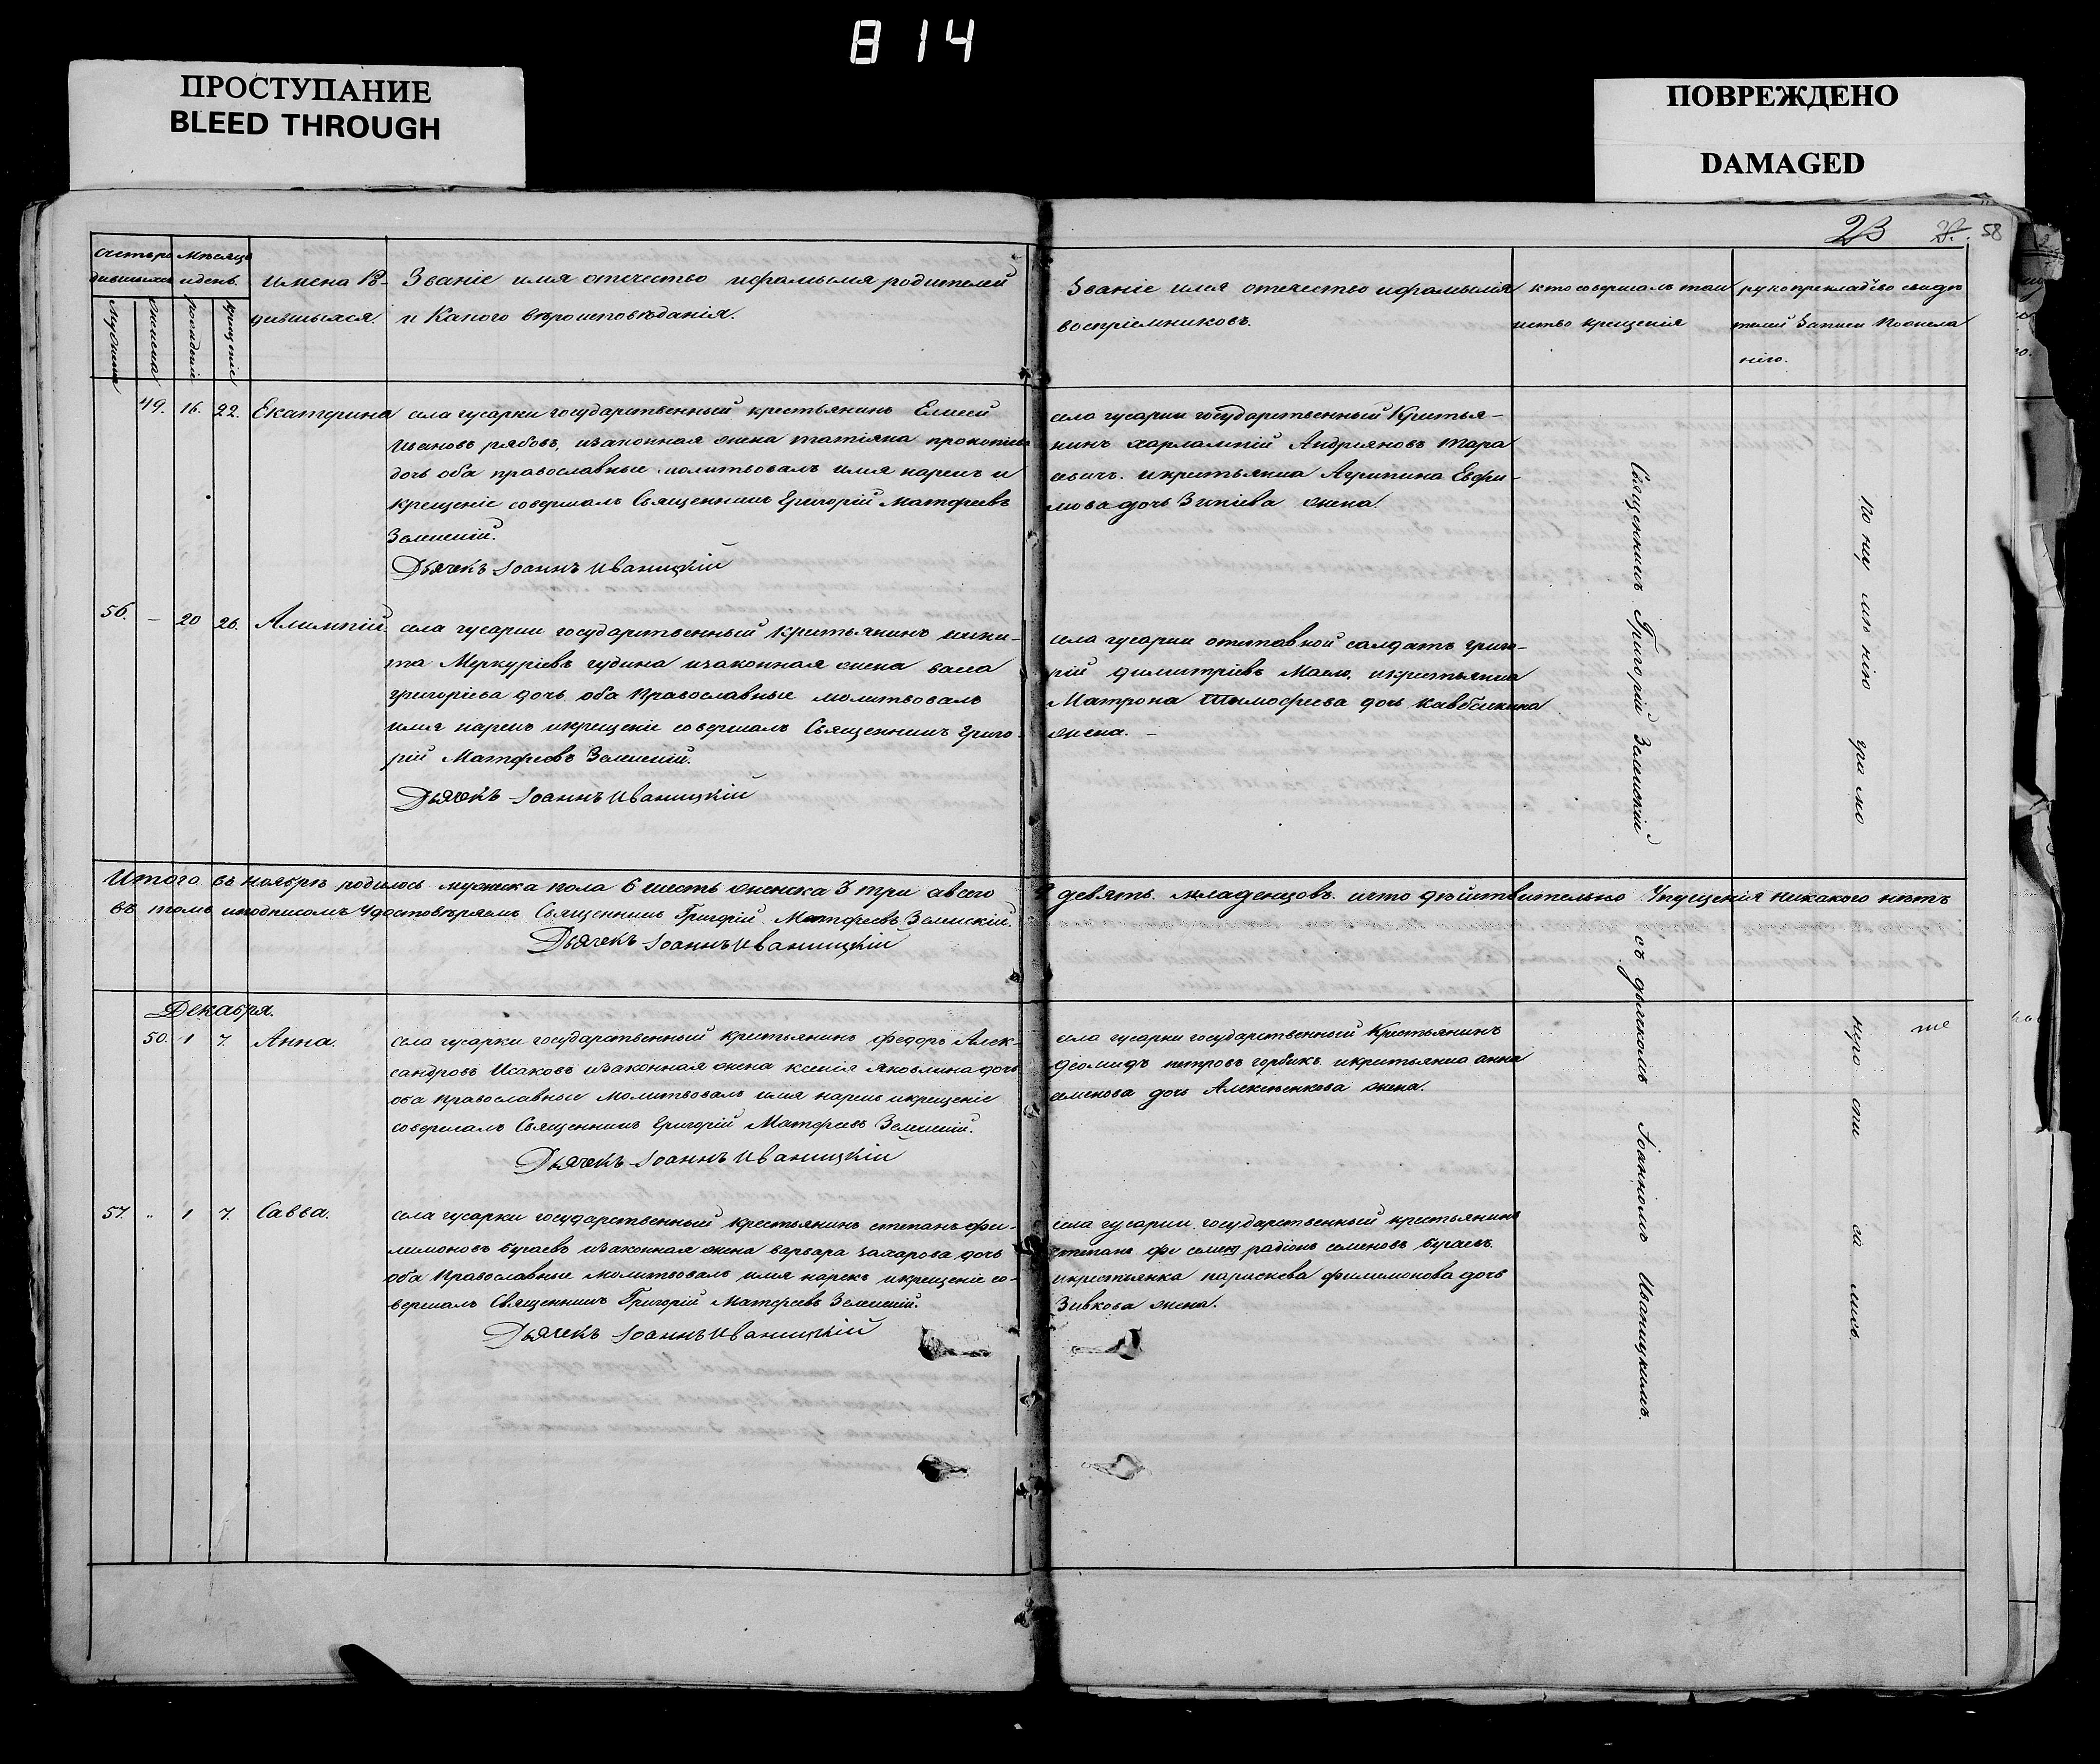 814
ПРОСТУПАНИЕ
BLEED THROUGH
ПОВРЕЖДЕНО
DAMAGED
23 58
Счетъ ро
дившихся
Мѣсяцъ
и день.
Мужеска
Женска
рожденіе
крещеніе
имена Ро-
дившихся.
Званіе имя отечество ифамилія родителей
и Какого вѣроисповѣданія.
Званіе имя отечество ифамилія
воспріемниковъ.
кто совершалъ таи
нство крещенія
рукоприкладство свидѣ
телей Записи по
нію.
49. 16. 22. Екатерина
села гусарки государственный крестьянинъ Елисей
Ивановъ рябовъ, изаконная жена татіяна прокопіева
дочь оба православные молитвовалъ имя нарекъ и
крещеніе совершалъ Священникъ Григорій Матфеевъ
Зеленскій.
Дьячекъ Іоаннъ Иваницкій
села гусарки государственный Крестья-
нинъ харлампій Андріяновъ тара
севичъ. икрестьянка Агрипина Евфи-
мова дочь жена.
56. – 20 26. Алимпій.
села гусарки государственный Крестьянинъ ники-
та Меркуріевъ гудина изаконная жена васса
григоріева дочь оба Православные молитвовалъ
имя нарекъ икрещеніе совершалъ Священникъ Григо-
рій Матфеевъ Зеленскій.
Дьячекъ Іоаннъ Иваницкій
села гусарки отставной салдатъ григо-
рій димитріевъ икрестьянка
Матрона тимофеева дочь
жена. –
Итого въ ноябрѣ родилось мужеска пола 6 шесть женска 3 три авсего 9 девять. младенцовъ. ичто дѣйствительно Упущенія никакого нѣтъ
въ томъ иподписомъ Удостовѣряемъ Священникъ Григорій Матфеевъ Зеленскій.
Дьячекъ Іоаннъ Иваницкій
Декабря.
50. 1 7. Анна.
села гусарки государственный крестьянинъ федоръ Алек-
сандровъ Исаковъ изаконная жена ксенія яковлина дочь
оба православные Молитвовалъ имя нарекъ икрещеніе
совершалъ Священникъ Григорій Матфеевъ Зеленскій.
Дьячекъ Іоаннъ Иваницкій
села гусарки государственный Крестьянинъ
діомидъ петровъ горбикъ. икрестьянка анна
семенова дочь Алексѣенкова жена.
57. „ 1 7. Савва.
села гусарки государственный крестьянинъ степанъ фи-
лимоновъ бугаевъ изаконная жена варвара захарова дочь
оба Православные молитвовалъ имя нарекъ икрещеніе со-
вершалъ Священникъ Григорій Матфеевъ Зеленскій.
Дьячекъ Іоаннъ Иваницкій
села гусарки. государственный крестьянинъ
степанъ фи радіонъ семеновъ бугаевъ.
икрестьянка параскева филимонова дочь
Зивкова жена.
Священникъ Григорій Зеленскій съ дьячкомъ Іоанномъ Иваницкимъ.
по не умѣнію грамо ты не росписались.